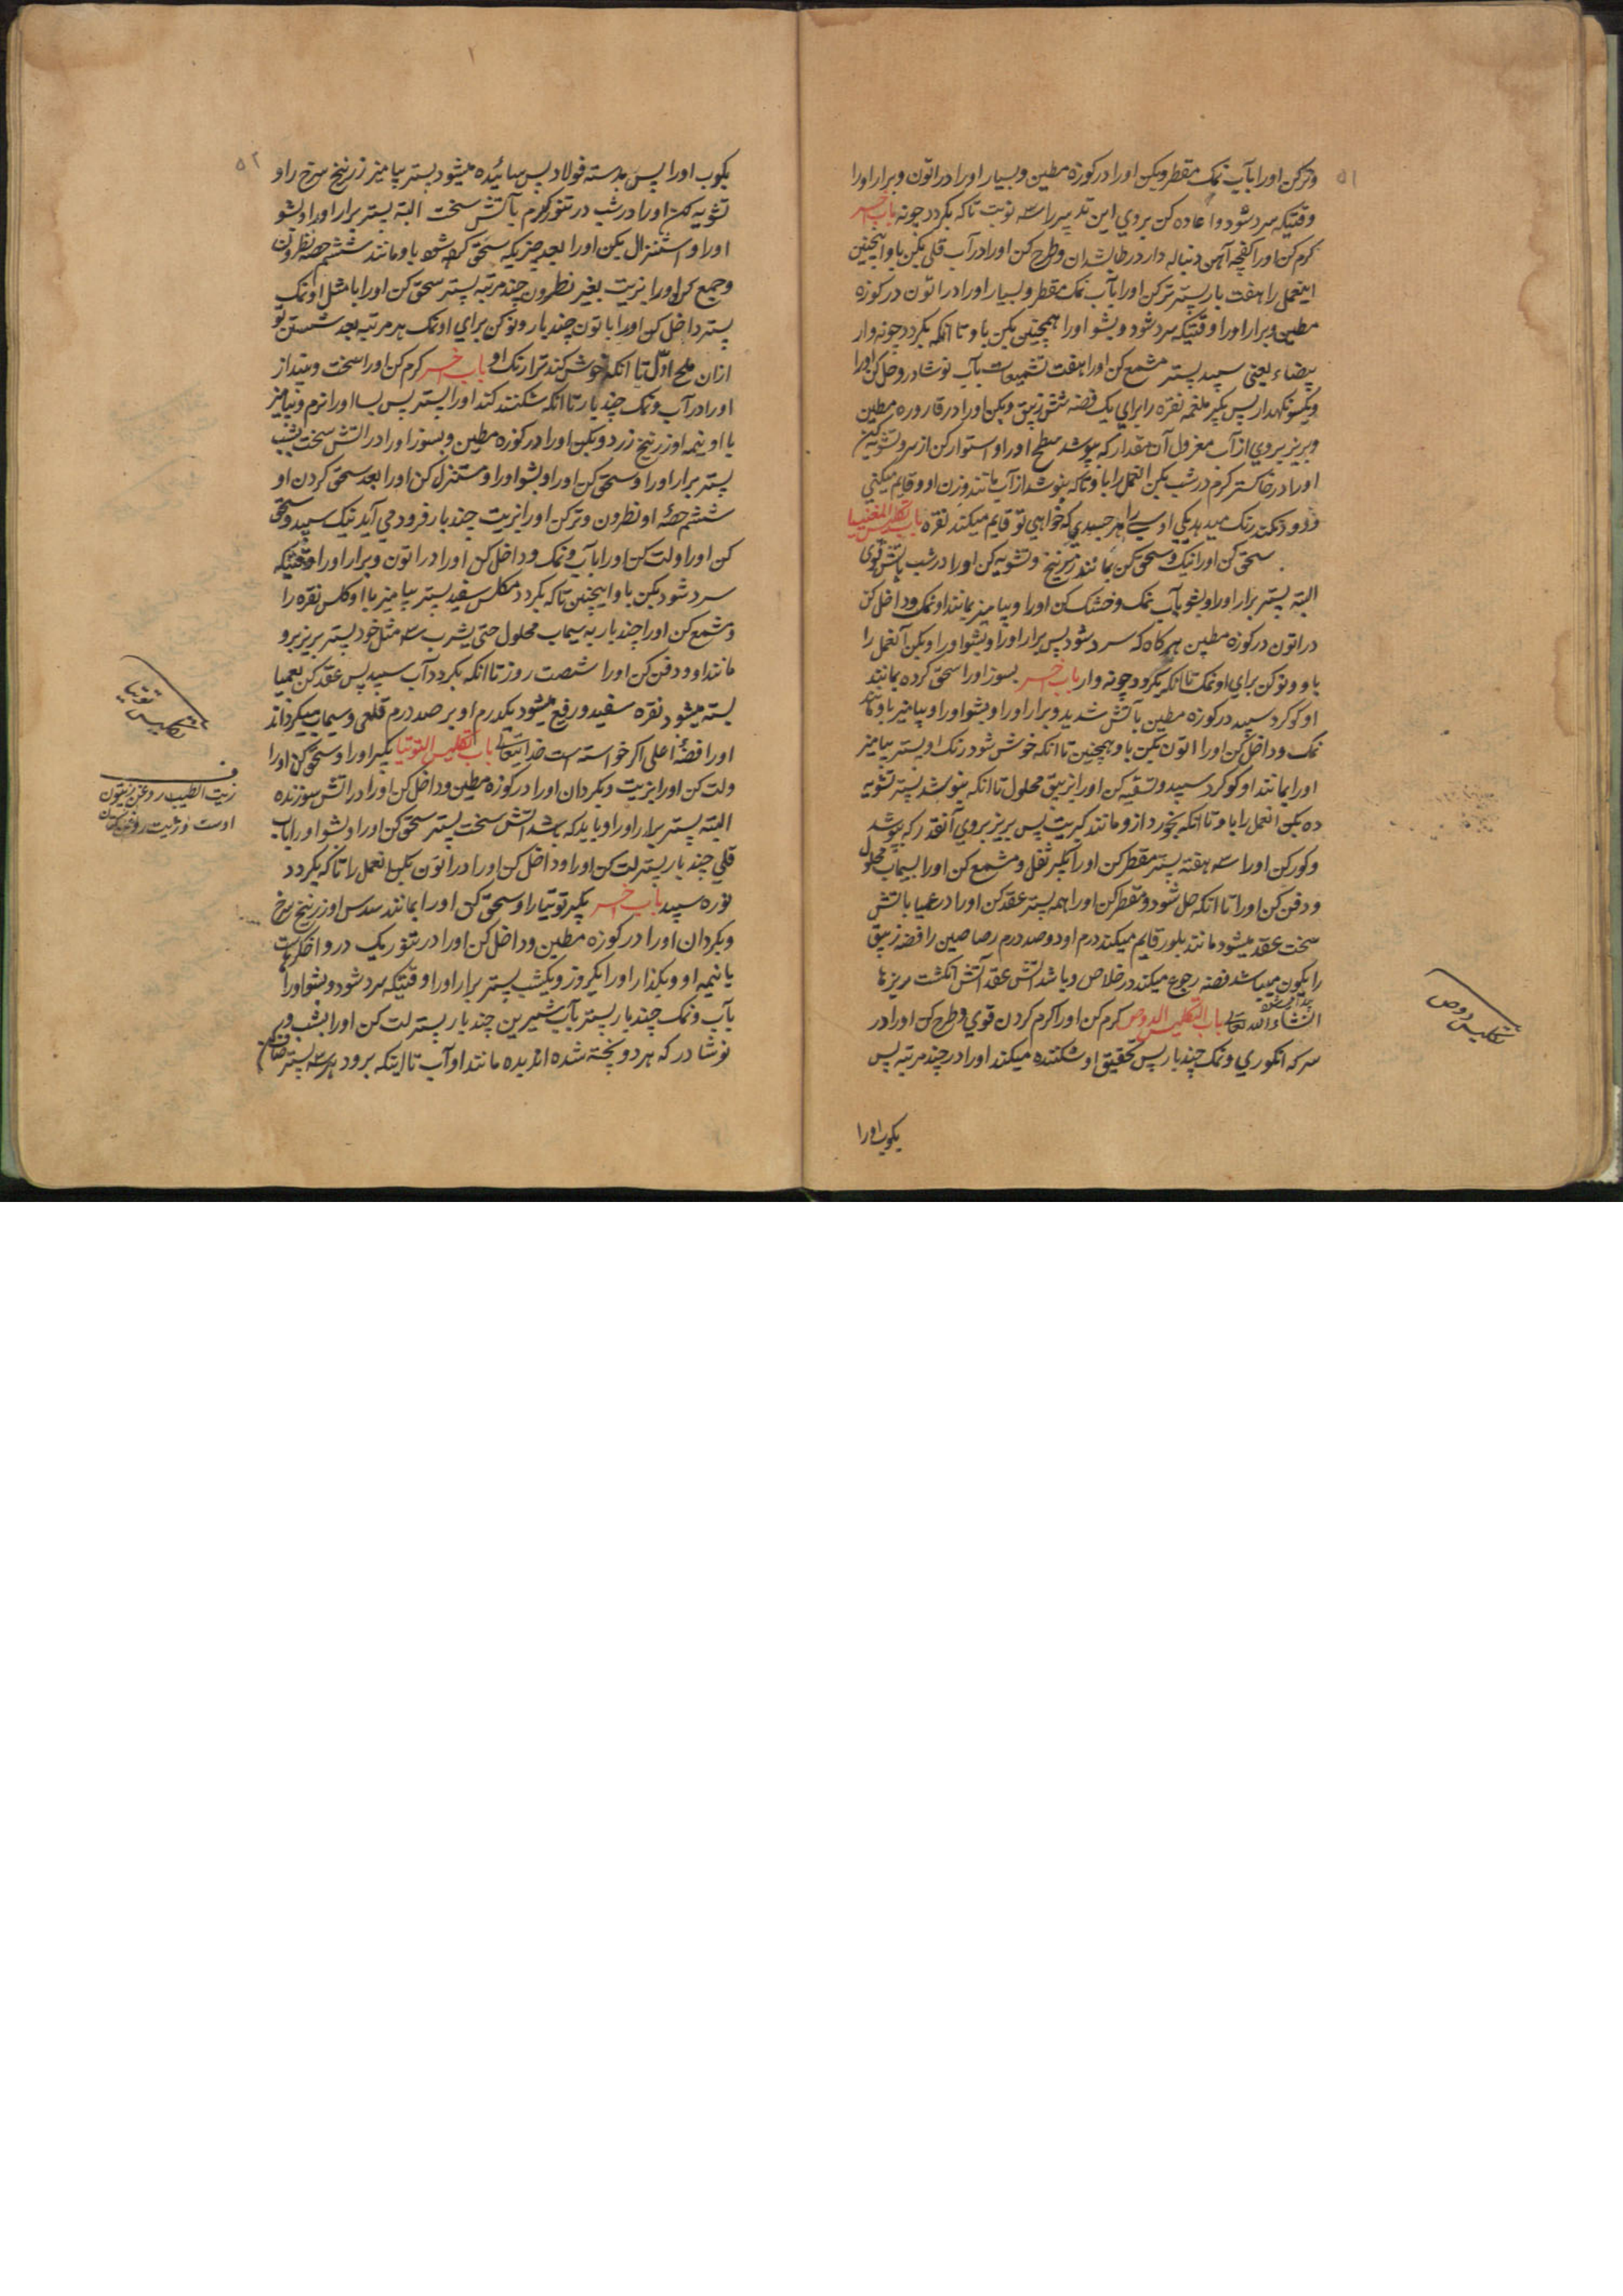 ۵۱
وترکن اورا بآب نمک مقطر وبکن اورا در کوزه مطین وبسیار اورا در اتون وبرار اورا
وقتیکه سرد شود واعاده کن بروی این تدبیر را سه نوبت تا که بکردد چونه باب اخر
کرم کن اورا کفچه آهن دنباله دار در طابشدان وطرح کن اورا در آب قلی بکن باو اینچنین
اینعمل را هفت بار پستر ترکن اورا بآب نمک مقطر وبسیار اورا در اتون در کوزه
مطین وبرار اورا وقتیکه سرد شود وبشو اورا همچنین بکن باو تا انکه بکردد چونه وار
بیضاء یعنی سپید پستر مشمع کن اورا هفت تشمیعات بآب نوشادر وحل کن اورا
ویکسو نکهدار پس بکیر ملغمه نقره را برای یک فضه شش زیبق وبکن اورا در قاروره مطین
وبریز بروی از آب معزول آن مقدار که بپوشد سطح اورا واستوار کن از سر وتشویه کن
اورا در خاکستر کرم در شب بکن العمل را باو تا که بنوشد از آب مانند وزن او وقایم میکنی
ودود نکند رنک میدهد یکی اوسی را هر جسدی که خواهی تو قایم میکند نقره باب تکلیس المغنیسا
سحق کن اورا نیک وسحق کن بمانند زرنیخ وتشویه کن اورا در شب بآتش قوی
البته پستر برار اورا وبشو بآب نمک وخشک کن اورا وبیامیز بمانند او نمک وداخل کن
در اتون در کوزه مطین هرکاه که سرد شود پس برار اورا وبشو اورا وبکن آنعمل را
باو ونو کن برای او نمک تا انکه بکردد چونه وار باب اخر بسوز اورا سحق کرده بمانند
او کوکرد سپید در کوزه مطین بآتش شدید وبرار اورا وبشو اورا وبیامیز باو مانند
نمک وداخل کن اورا اتون بکن باو همچنین تا انکه خوش شود رنک او پستر بیامیز
اورا بمانند او کوکرد سپید وتسقیه کن اورا زیبق محلول تا انکه بنوشد پستر تشویه
ده بکن انعمل را باو تا انکه بخورد از و مانند کبریت پس بریز بروی آنقدر که بپوشد
وکور کن اورا سه هفته پستر مقطر کن اورا بکیر ثفل ومشمع کن اورا بسیماب محلول
ودفن کن اورا تا انکه حل شود ومقطر کن اورا همه پستر عقد کن اورا در عمیا بآتش
سخت عقد میشود مانند بلور قایم میکند درم او دوصد درم رصاصین را فضه زیبق
را یکون میباشد فضه رجوع میکند در خلاص وباشد آتش عقد آتش انکشت ریزها
انشاء الله تعالی باب التکلیس الدوص کرم کن اورا کرم کردن قوی وطرح کن اورا در
سرکه انکوری ونمک چند بار پس تحقیق او شکننده میکند اورا در چند مرتبه پس
بکوب اورا
تکلیس دوص
۵۲
بکوب اورا پس بدسته فولاد پس سائیده میشود پستر بیامیز زرنیخ سرخ را و
تشویه کن اورا در شب در تنور کرم بآتش سخت البته پستر برار اورا وبشو
اورا واستنزال بکن اورا بعد چیزیکه سحق کرده شود باو مانند ششم حصه نطرون
وجمع کن اورا بزیت بغیر نطرون چند مرتبه پستر سحق کن اورا با مثل او نمک
پستر داخل کن اورا با تون چند بار ونو کن برای او نمک هر مرتبه بعد شستن تو
ازان ملح اول تا انکه خوش کند ترا رنک او باب اخر کرم کن اورا سخت وبینداز
اورا در آب ونمک چند بار تا انکه شکننده کند اورا پستر پس بسا اورا نرم وبیامیز
با او نیمه او زرنیخ زرد وبکن اورا در کوزه مطین وبسوز اورا در آتش سخت بشب
پستر برار اورا وسحق کن اورا وبشو اورا ومستنزل کن اورا بعد سحق کردن او
ششم حصه او نطرون وترکن اورا بزیت چند بار فرود می آید نیک سپید وسحق
کن اورا ولت کن اورا بآب ونمک وداخل کن اورا در اتون وبرار اورا وقتیکه
سرد شود بکن باو اینچنین تا که بکردد مکلس سفید پستر بیامیز با او کلس نقره را
ومشمع کن اورا چند بار به سیماب محلول حتی یشرب سه مثل خود پستر بریز برو
مانند او ودفن کن اورا شصت روز تا انکه بکردد آب سپید پس عقد کن بعمیا
بسته میشود نقره سفید ورفیع میشود یکدرم او بر صد درم قلعی وسیماب میکرداند
اورا فضهٔ اعلی اکر خواسته است خدایتعالی باب تکلیس التوتیا بکیر اورا وسحق کن اورا
ولت کن اورا بزیت وبکردان اورا در کوزه مطین وداخل کن اورا در آتش سوزنده
البته پستر برار اورا وباید که باشد آتش سخت پستر سحق کن اورا وبشو اورا بآب
قلی چند بار پستر لت کن اورا وداخل کن اورا در اتون بکن انعمل را تا که بکردد
نوره سپید باب اخر بکیر توتیا را وسحق کن اورا بمانند سدس او زرنیخ سرخ
وبکردان اورا در کوزه مطین وداخل کن اورا در تنور یک در و
یا نیمه او وبکذار اورا یکروز ویکشب پستر برار اورا وقتیکه سرد شود وبشو اورا
بآب ونمک چند بار پستر بآب شیرین چند بار پستر لت کن اورا بشب و
نوشادر که هر دو پخته شده اند بده مانند او آب تا اینکه برود هر سه پستر
تکلیس توتیا
ف
زیت الطیب روغن زیتون
اوست وزیت روغن